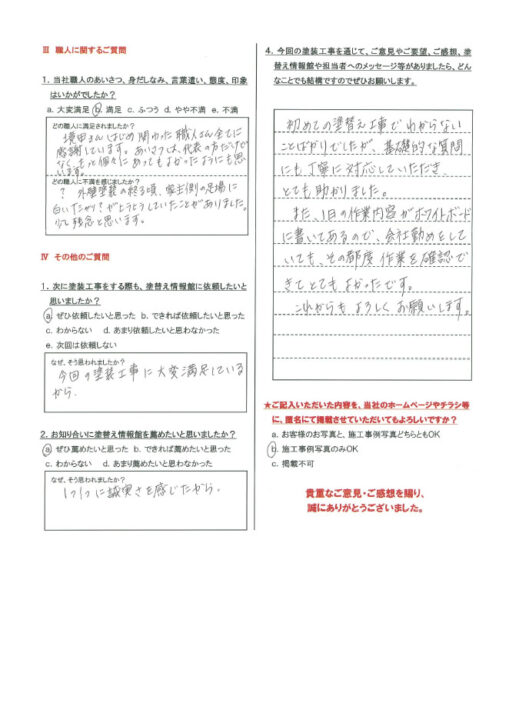 Ⅲ 職人に関するご質問
1. 当社職人のあいさつ、身だしなみ、言葉遣い、態度、印象
はいかがでしたか？
a. 大変満足 b. 満足 c. ふつう d. やや不満 e. 不満
どの職人に満足されましたか？
さんはじめ関わった職人さん全てに
感謝しています。あいさつは、代表の方だけで
なく、もっと個々にあってもよかったようにも思
います。
どの職人に不満を感じましたか？
？ 外壁塗装の終る頃、富士側の足場に
白いたヤリ？がとうとうしていたことがありました。
少し残念と思います。
Ⅳ その他のご質問
1. 次に塗装工事をする際も、塗替え情報館に依頼したいと
思いましたか？
a. ぜひ依頼したいと思った b. できれば依頼したいと思った
c. わからない d. あまり依頼したいと思わなかった
e. 次回は依頼しない
なぜ、そう思われましたか？
今回の塗装工事に大変満足している
から。
2. お知り合いに塗替え情報館を薦めたいと思いましたか？
a. ぜひ薦めたいと思った b. できれば薦めたいと思った
c. わからない d. あまり薦めたいと思わなかった
なぜ、そう思われましたか？
1つ1つに誠実さを感じたから。
4. 今回の塗装工事を通じて、ご意見やご要望、ご感想、塗
替え情報館や担当者へのメッセージ等がありましたら、どん
なことでも結構ですのでぜひお願いします。
初めての塗替え工事でわからない
ことばかりでしたが、基礎的な質問
にも丁寧に対応していただき、
とても助かりました。
また、1日の作業内容がホワイトボード
に書いてあるので、会社勤めをして
いても、その都度作業を確認で
きてとてもよかったです。
これからもよろしくお願いします。
★ご記入いただいた内容を、当社のホームページやチラシ等
に、匿名にて掲載させていただいてもよろしいですか？
a. お客様のお写真と、施工事例写真どちらともOK
b. 施工事例写真のみOK
c. 掲載不可
貴重なご意見・ご感想を賜り、
誠にありがとうございました。